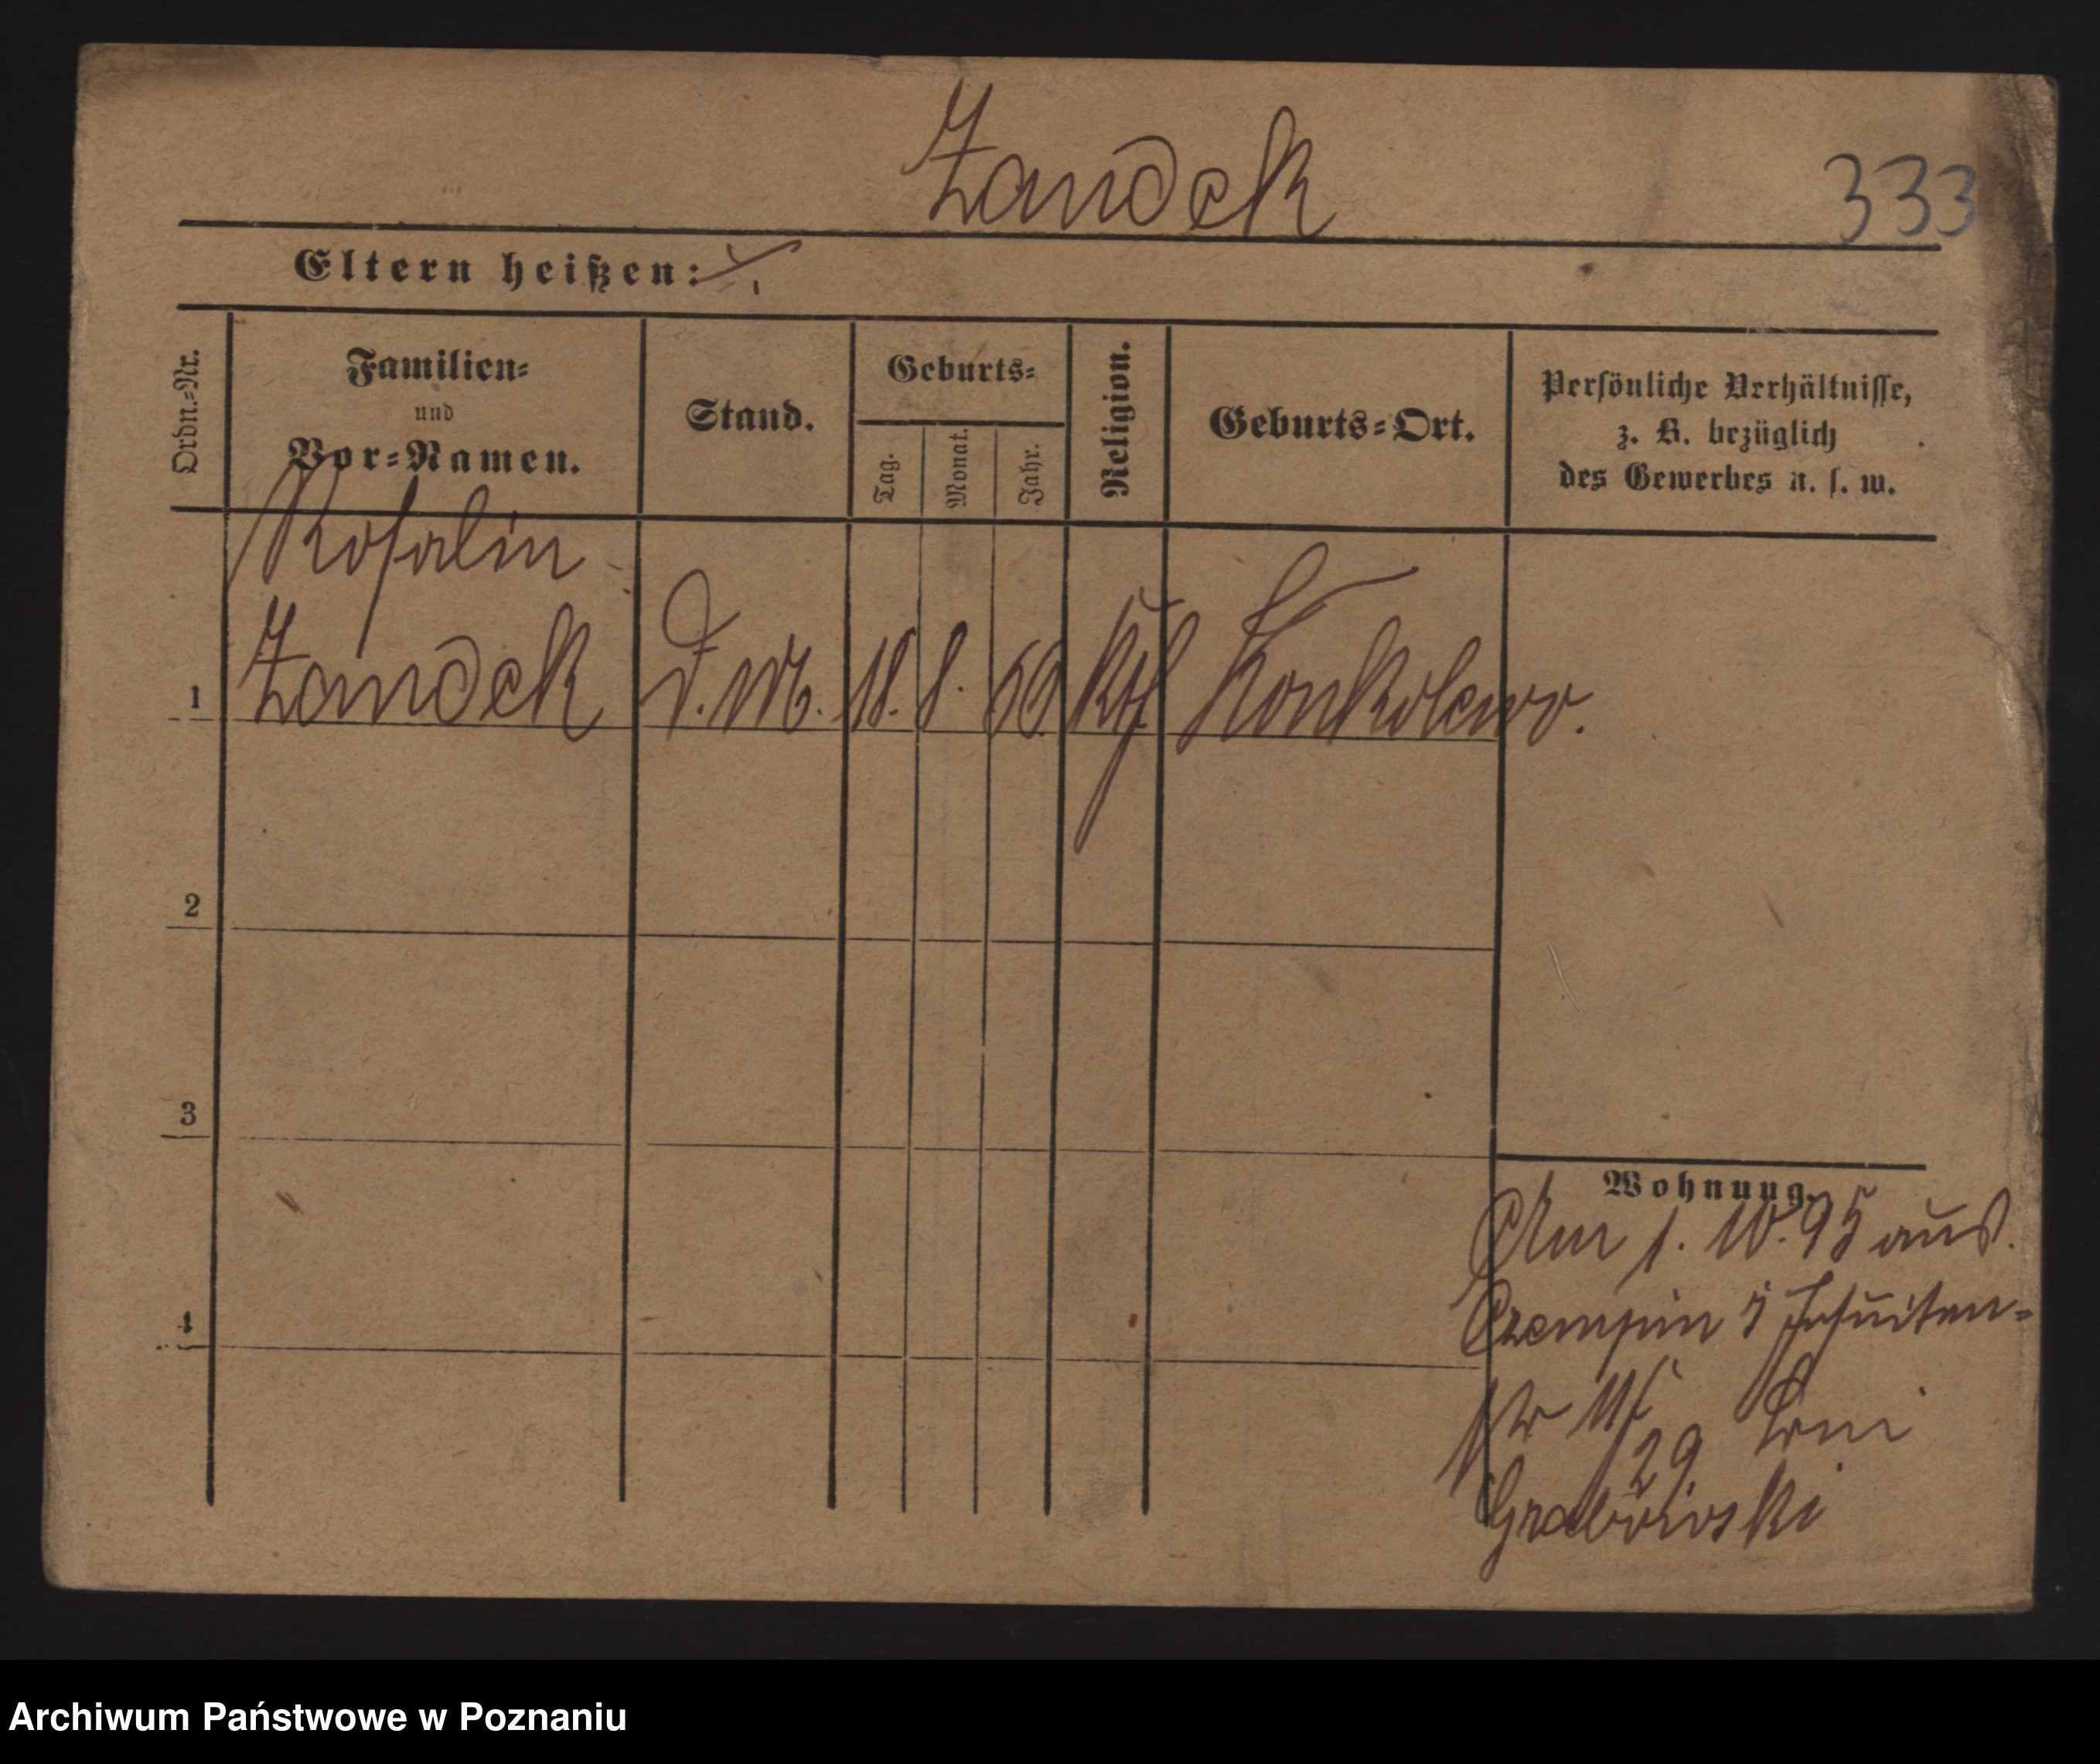 Zandek
333
Eltern heißen: ./.
Ordn.-Nr.
Familien-
und
Vor-Namen.
Stand.
Geburts-
Tag.
Monat.
Jahr.
Religion.
Geburts-Ort.
Persönliche Verhältnisse,
z. B. bezüglich
des Gewerbes u. s. w.
Rosalin
1 Zandek D. M. 18. 8. 69. Kth Konkolewo.
2
3
4
Wohnung.
Am 1. 10. 95 aus
Czempin Jesuiten-
str 11/
29. bei
Grabowski
Archiwum Państwowe w Poznaniu